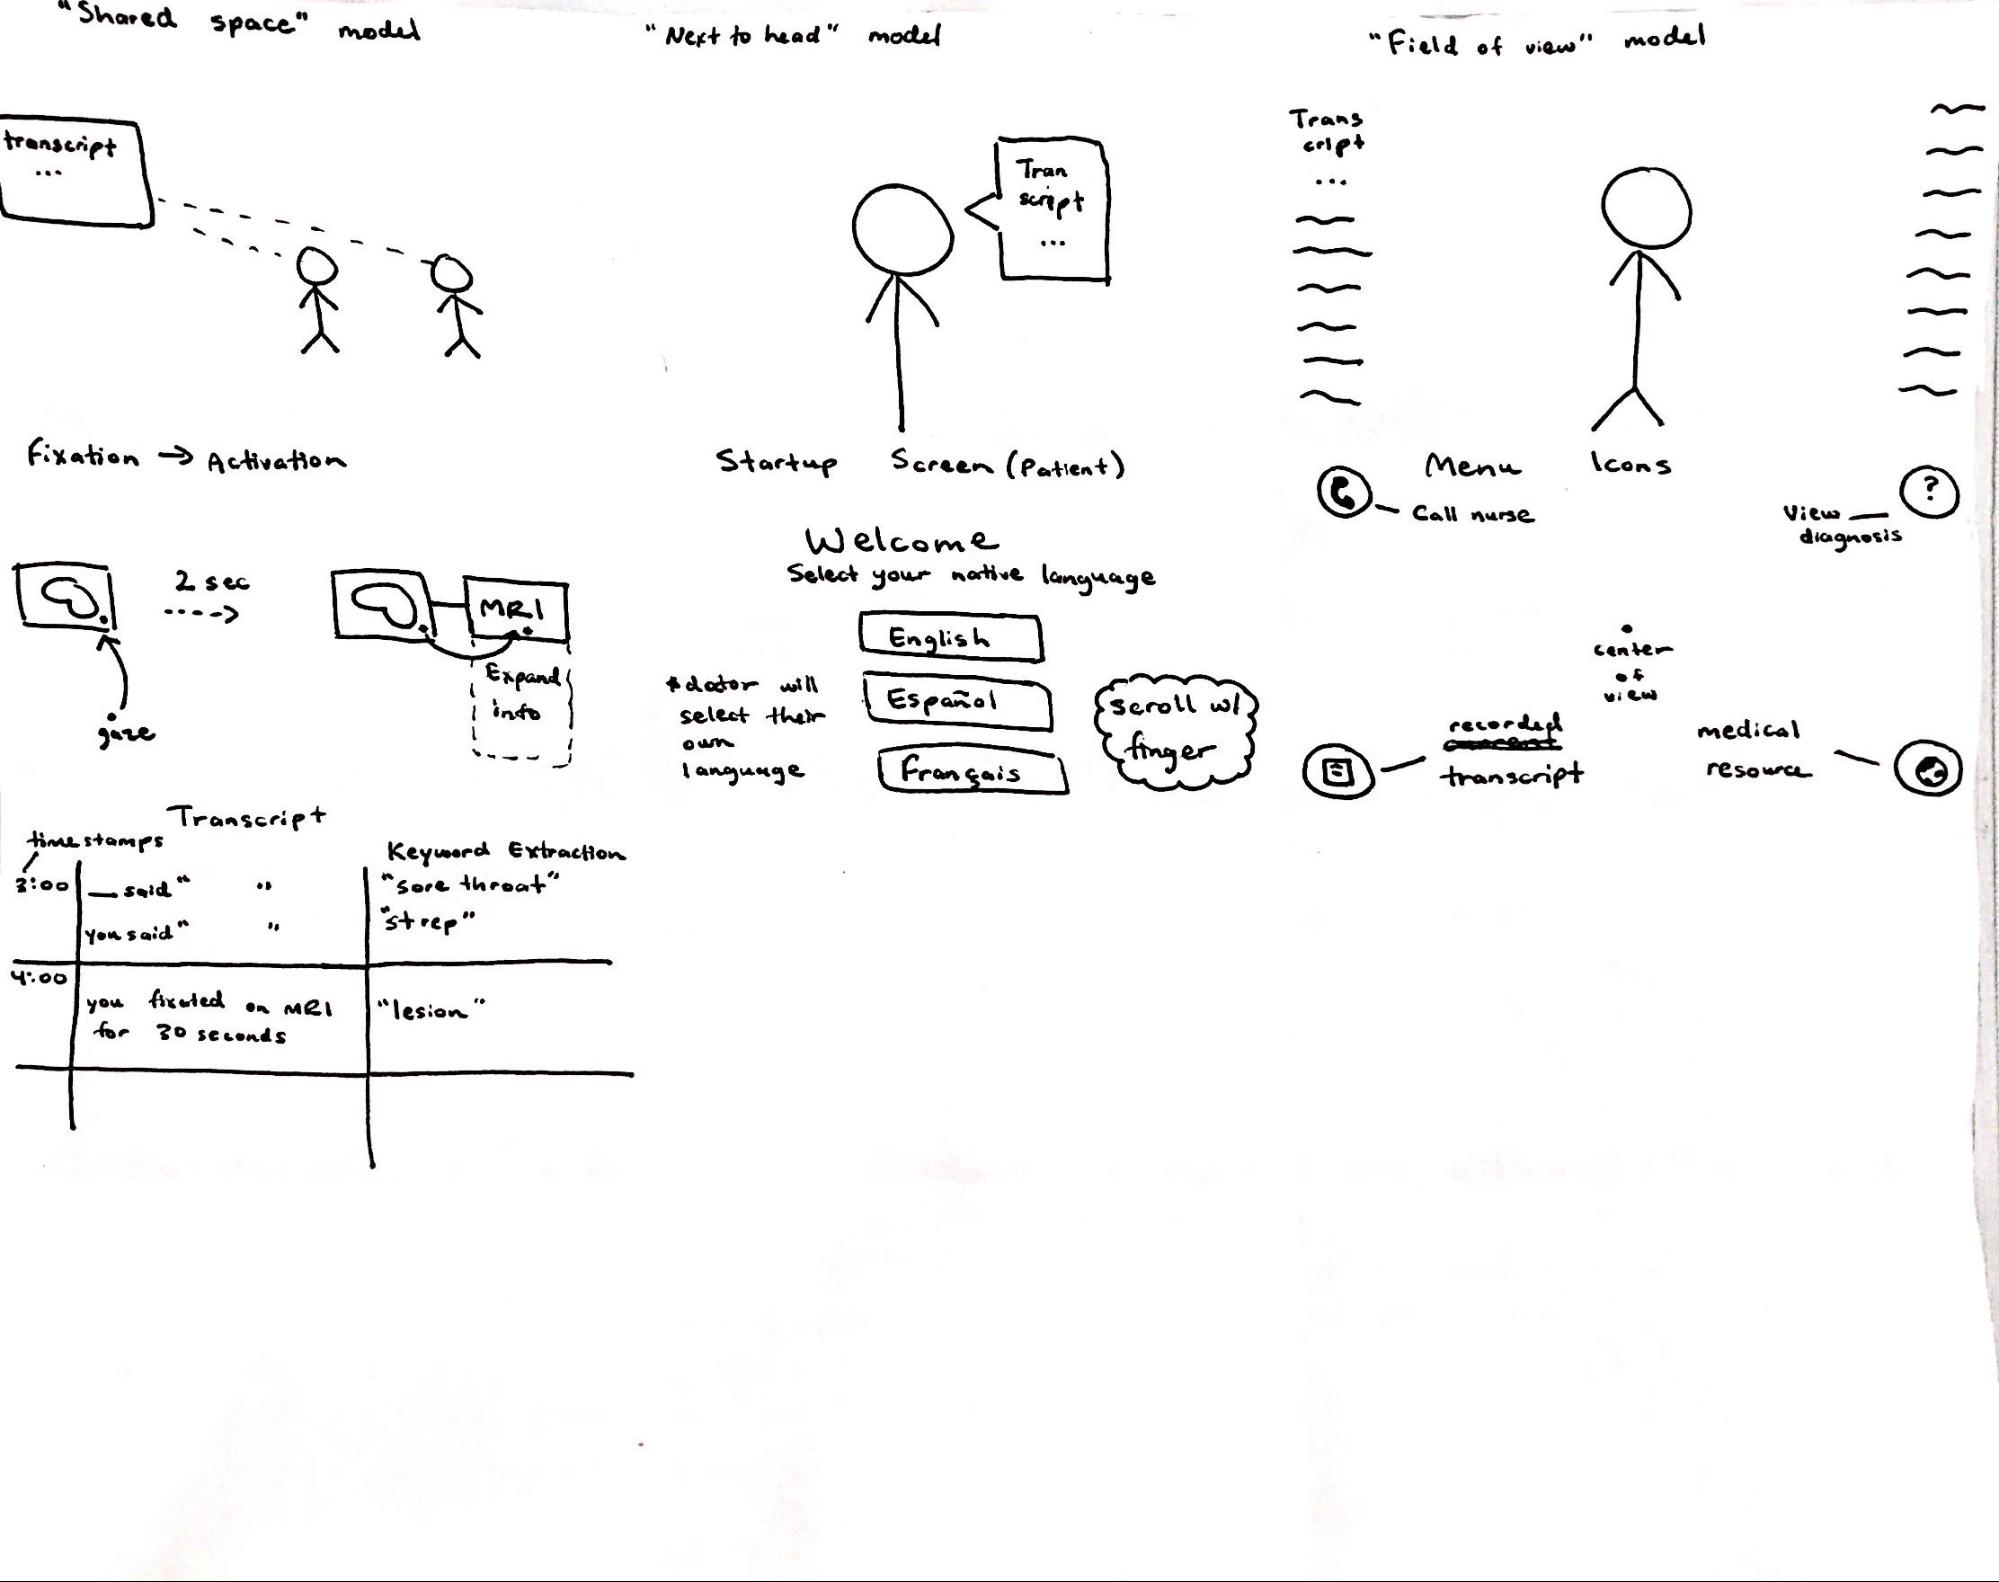 "Shared space" model
transcript
...
"Next to head" model
Tran
script
...
"Field of view" model
Trans
cript
...
Fixation → Activation
2 sec
gaze
MRI
Expand
info
Startup Screen (Patient)
Welcome
Select your native language
English
Español
Français
*doctor will
select their
own
language
scroll w/
finger
Menu Icons
Call nurse
?
View
diagnosis
center
of
view
recorded
transcript
medical
resource
Transcript
timestamps
Keyword Extraction
3:00
— said " "
"sore throat"
you said " "
"strep"
4:00
you fixated on MRI
for 30 seconds
"lesion"